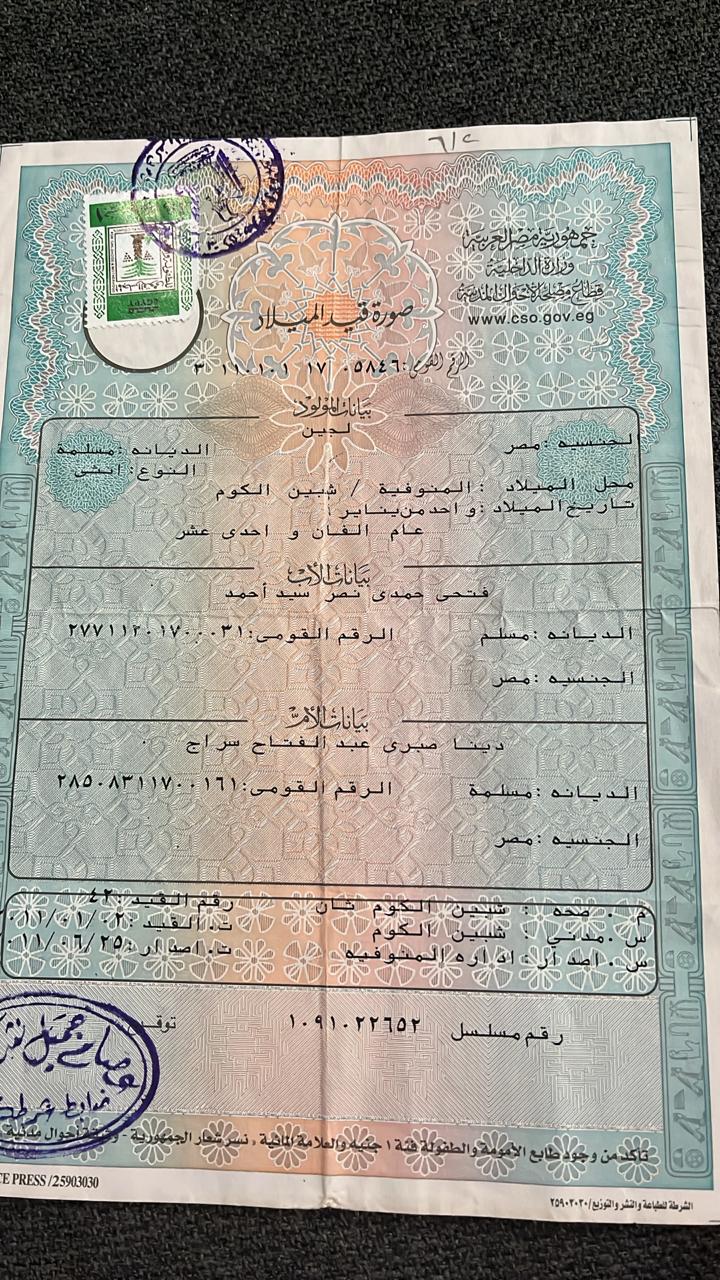 ٦/٤
جمهورية مصر العربية
وزارة الداخلية
قطاع مصلحة الأحوال المدنية
www.cso.gov.eg
EGYPT
صورة قيد الميلاد
الرقم القومى: ٣ ١١٠١٠١ ١٧ ٠٥٨٤٦
بيانات المولود
لجين
لجنسيه :مصر الديانه :مسلمة
النوع :انثى
محل الميلاد : المنوفية / شبين الكوم
تاريخ الميلاد :واحد من يناير
عام الفان و احدى عشر
بيانات الأب
فتحى حمدى نصر سيد أحمد
الديانه :مسلم الرقم القومى:٢٧٧١١٢٠١٧٠٠٠٣١
الجنسيه :مصر
بيانات الأم
دينا صبرى عبد الفتاح سراج
الديانه :مسلمة الرقم القومى:٢٨٥٠٨٣١١٧٠٠١٦١
الجنسيه :مصر
م . صحه : شبين الكوم ثان رقم القيد :٤٢
س .مدني : شبين الكوم ت. القيد :٠١١/٠١/٠٢
س . اصدار : اداره المنوفيه ت. اصدار :٠١١/٠٦/٢٥
رقم مسلسل ١٠٩١٠٢٢٦٥٢ توقيـ
ضابط شرطة
تأكد من وجود طابع الأمومة والطفولة فئة ١ جنيه والعلامة المائية « نسر شعار الجمهورية - وثيقة أحوال مدنية
CE PRESS /25903030
الشرطة للطباعة والنشر والتوزيع/٢٥٩٠٣٠٣٠